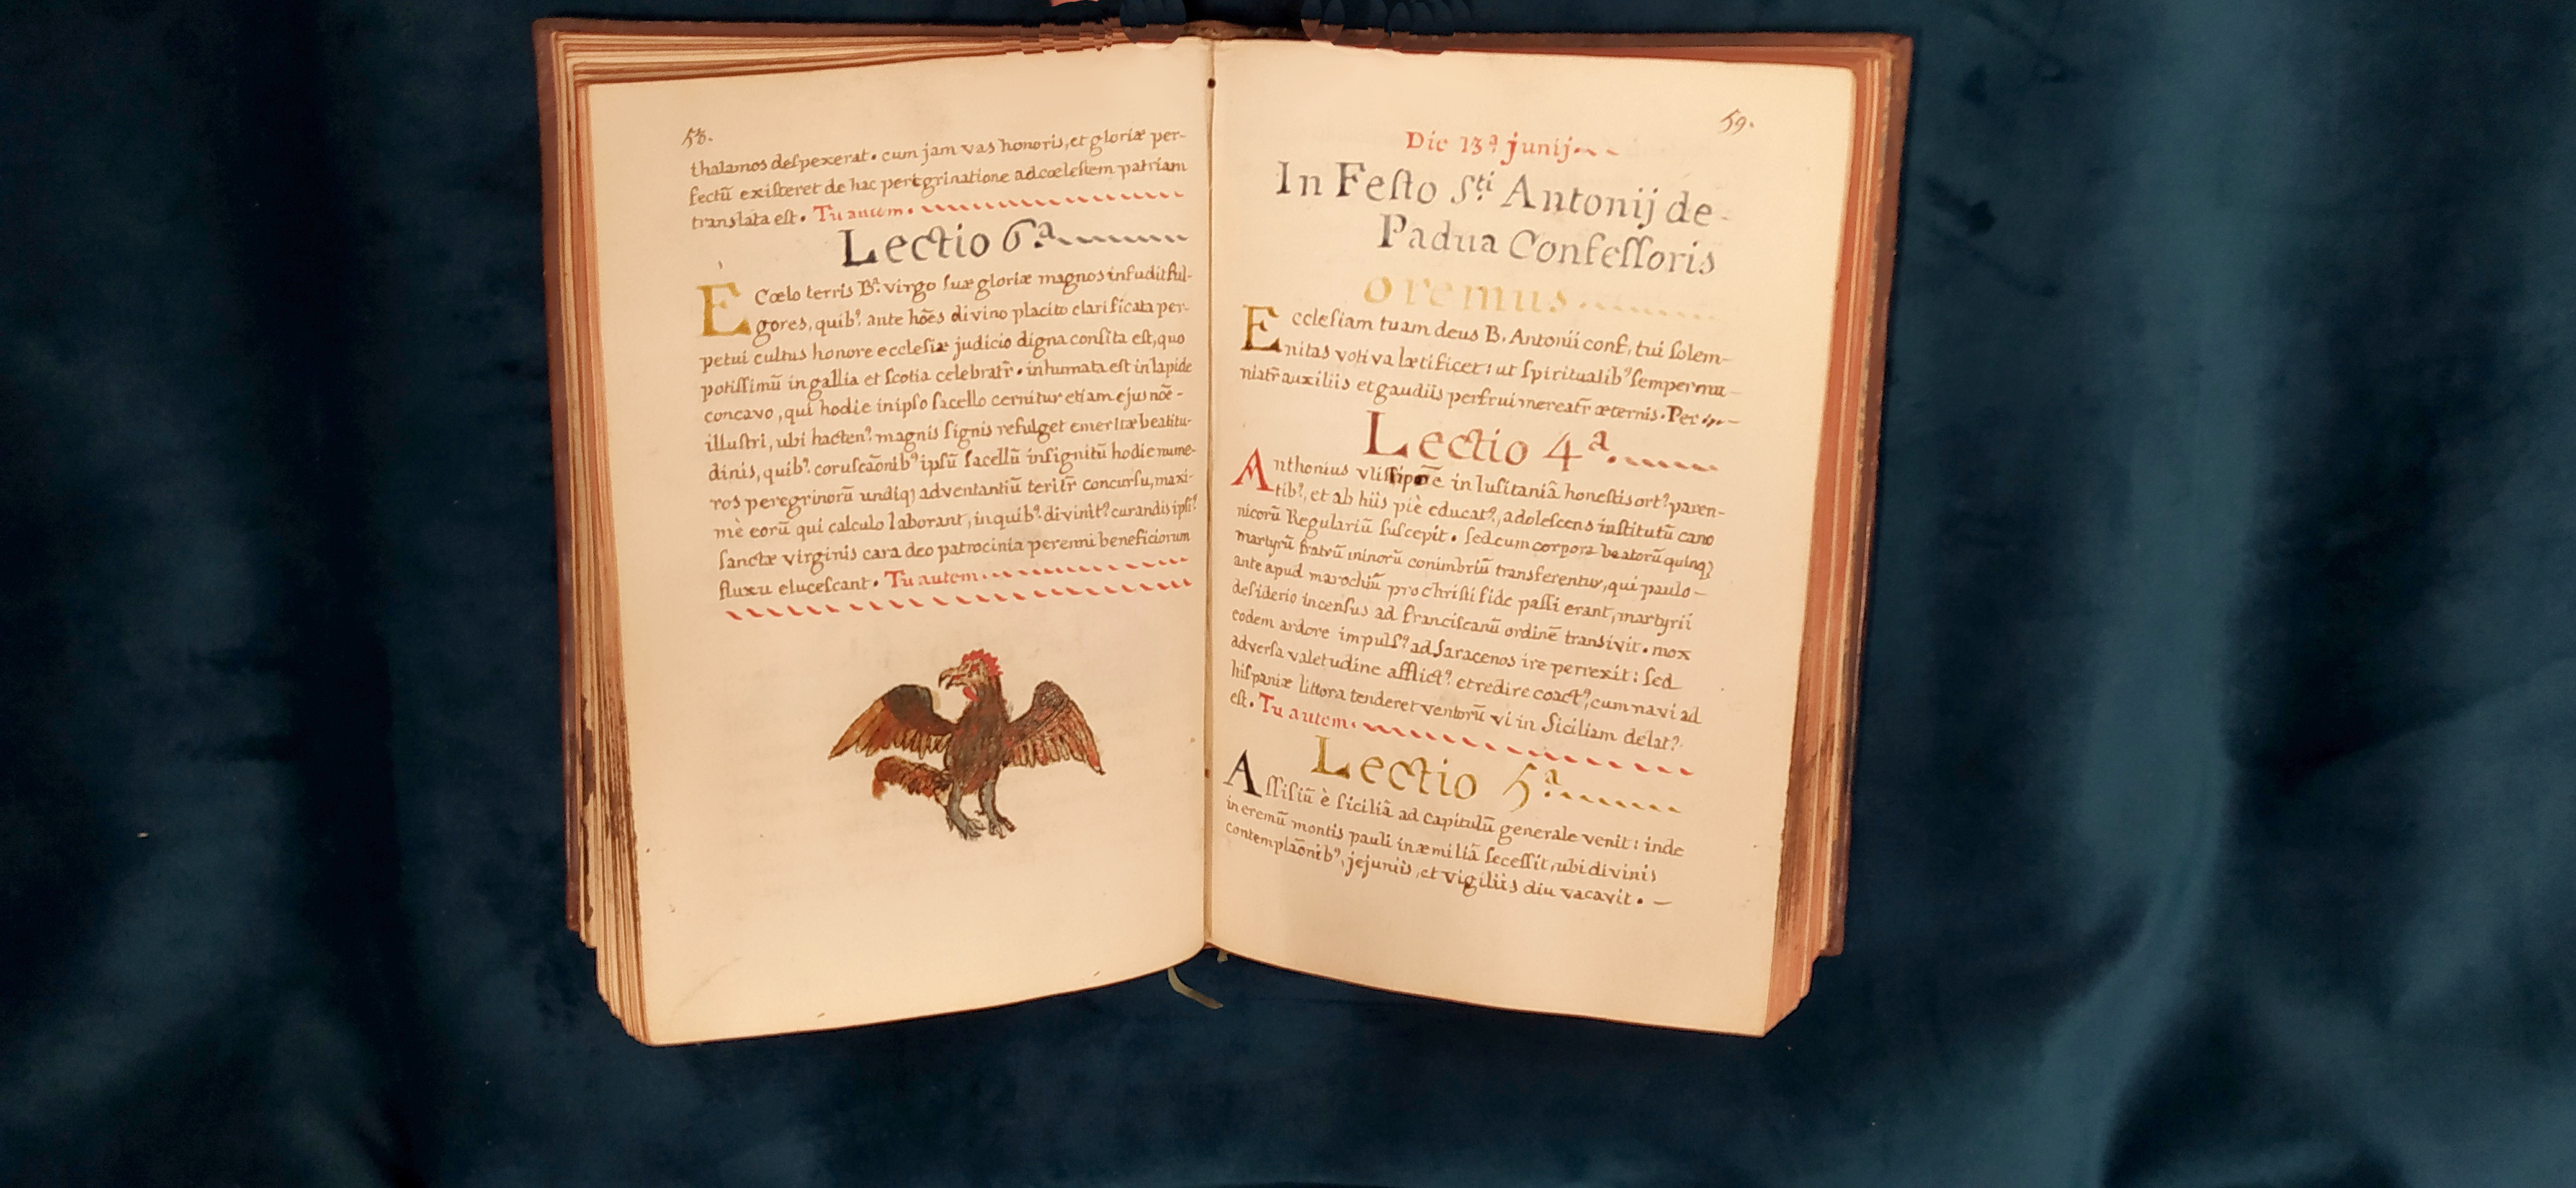 58.
thalamos deſpexerat. cum jam vas honoris, et gloriæ per-
fectū exiſteret de hac peregrinatione ad cœleſtem patriam
translata eſt. Tu autem.
Lectio 6ª.
E Cœlo terris Bª. virgo ſuæ gloriæ magnos infudit ful-
gores, quib⁹. ante hōēs divino placito clarificata per-
petui cultus honore eccleſiæ judicio digna conſita eſt, quo
potiſſimū in gallia et ſcotia celebratr̄. inhumata eſt in lapide
concavo, qui hodie in ipſo ſacello cernitur etiam ejus nōē-
illuſtri, ubi hacten⁹. magnis ſignis refulget emeritæ beatitu-
dinis, quib⁹. coruſcāonib⁹ ipſū ſacellū inſignitū hodie nume-
ros peregrinorū undiq₃ adventantiū teritr̄ concurſu, maxi-
mè eorū qui calculo laborant, in quib⁹. divinit⁹ curandis ipſi⁹
ſanctæ virginis cara deo patrocinia perenni beneficiorum
fluxu eluceſcant. Tu autem.
59.
Die 13ª junij.
In Feſto Sti Antonij de
Padua Confeſſoris
oremus.
Eccleſiam tuam deus B. Antonii conf. tui ſolem-
nitas votiva lætificet: ut ſpiritualib⁹ ſemper mu-
niatr̄ auxiliis et gaudiis perfrui mereatr̄ æternis. Per
Lectio 4ª.
Anthonius vliſſipōē in luſitaniâ honeſtis ort⁹ paren-
tib⁹, et ab hiis piè educat⁹, adoleſcens inſtitutū cano
nicorū Regulariū ſuſcepit. ſed cum corpora beatorū quinq₃
martyrū fratrū minorū conimbriū transferentur, qui paulo-
ante apud marochiū pro chriſti fide paſſi erant, martyrii
deſiderio incenſus ad franciſcanū ordinē transivit. mox
eodem ardore impulſ⁹ ad ſaracenos ire perrexit: ſed
adverſa valetudine afflict⁹ et redire coact⁹, cum navi ad
hiſpaniæ littora tenderet ventorū vi in Siciliam delat⁹
eſt. Tu autem.
Lectio 5ª.
Aſſiſiū è ſiciliâ ad capitulū generale venit: inde
in eremū montis pauli in æmiliâ ſeceſſit, ubi divinis
contemplāonib⁹, jejuniis, et vigiliis diu vacavit.